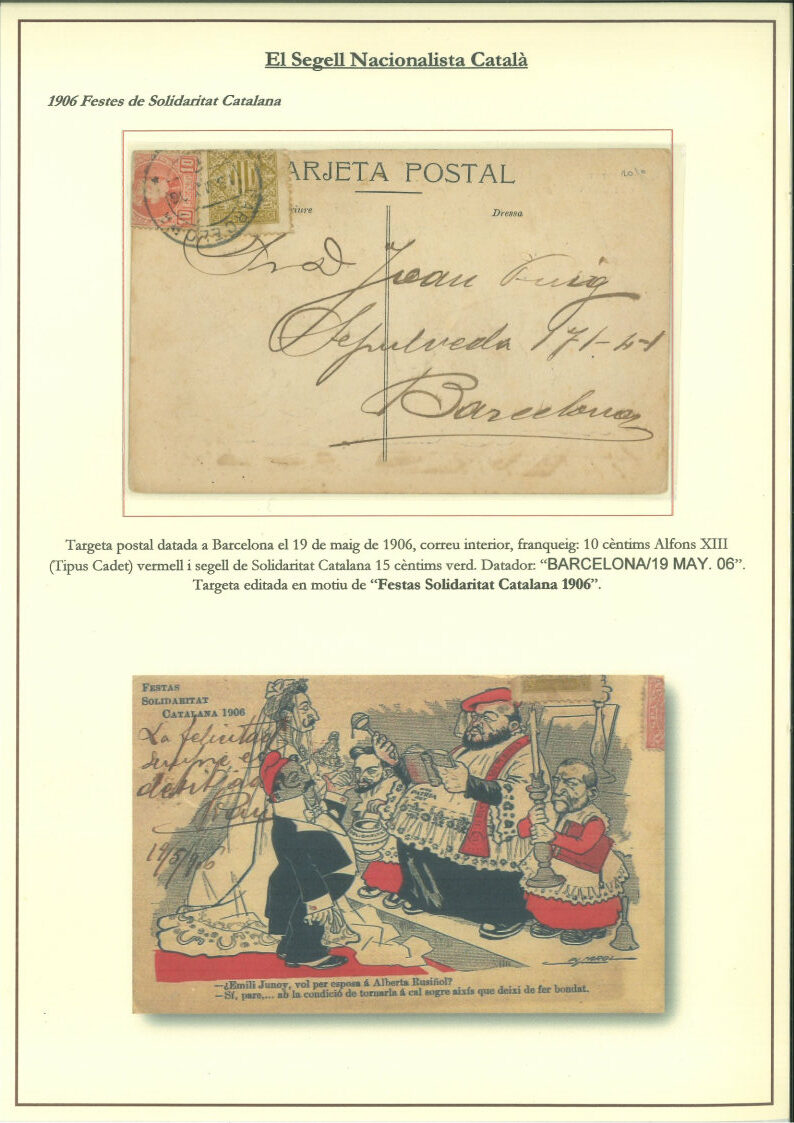 El Segell Nacionalista Català
1906 Festes de Solidaritat Catalana
ARJETA POSTAL
Dressa
10
10
Joan Puig
Sepulveda 171-4-1
Barcelona
Targeta postal datada a Barcelona el 19 de maig de 1906, correu interior, franqueig: 10 cèntims Alfons XIII
(Tipus Cadet) vermell i segell de Solidaritat Catalana 15 cèntims verd. Datador: “BARCELONA/19 MAY. 06”.
Targeta editada en motiu de “Festas Solidaritat Catalana 1906”.
FESTAS
SOLIDARITAT
CATALANA 1906
La felicitat
19/5/906
—¿Emili Junoy, vol per esposa á Alberta Rusiñol?
—Sí, pare,... ab la condició de tornarla á cal sogre aixís que deixi de fer bondat.